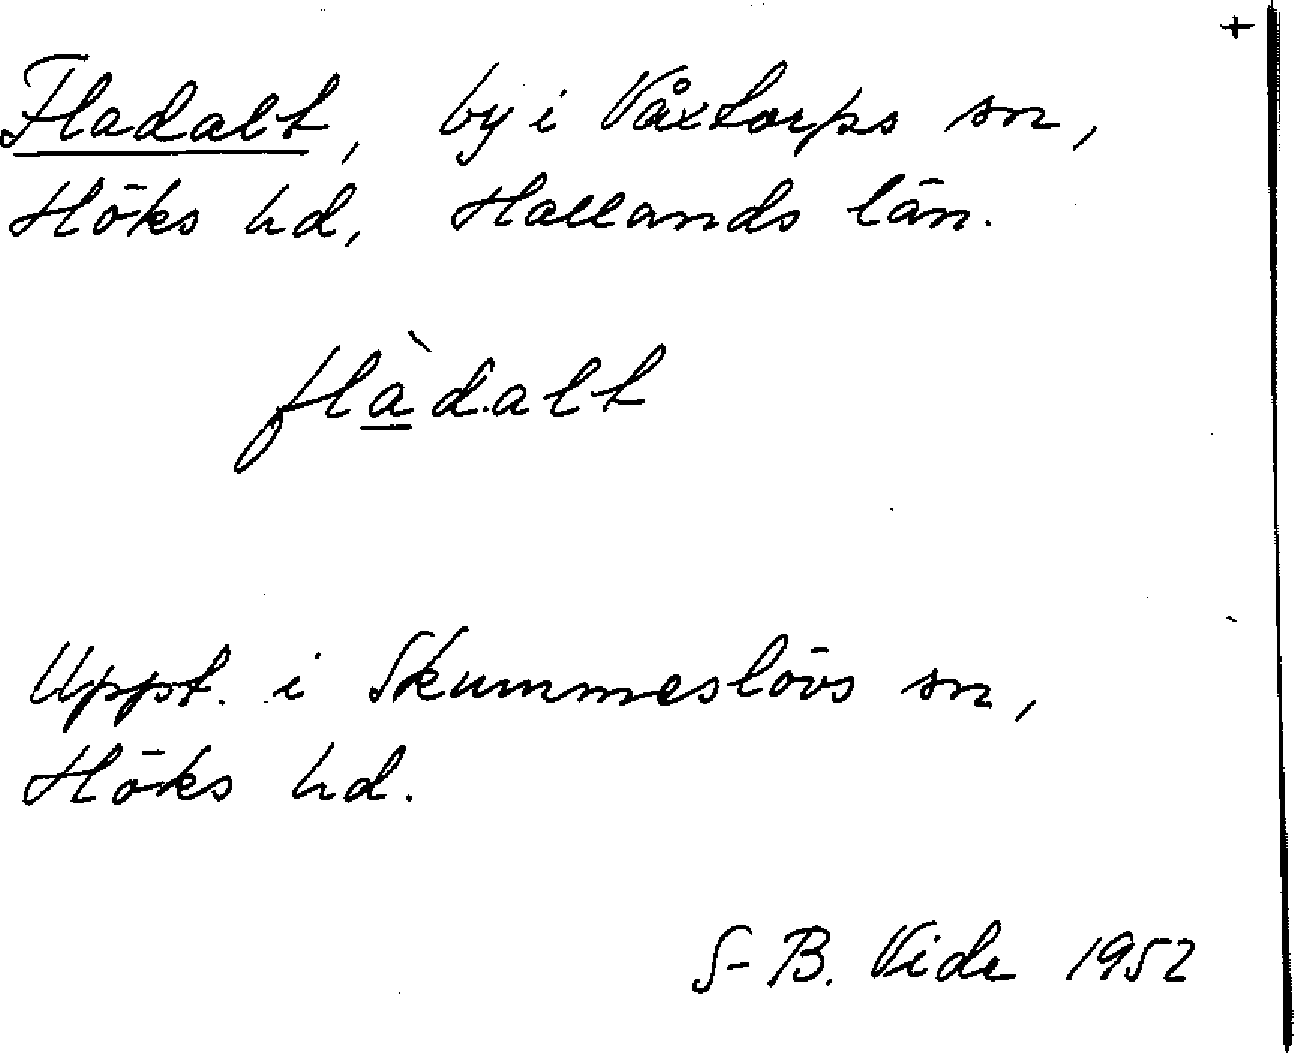 +
Fladalt, by i Våxtorps sn,
Höks hd, Hallands län.
flàdalt
Uppt. i Skummeslövs sn,
Höks hd.
S-B. Vide 1952